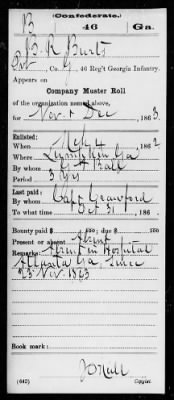 (Confederate.)
B 46 Ga.
B. R. Burts
Pvt Co. G, 46 Reg't Georgia Infantry.
Appears on
Company Muster Roll
of the organization named above,
for Nov. & Dec , 1863.
Enlisted:
When 4 , 1862
Where Lumpkin Ga
By whom Ball
Period 3 Yrs
Last paid:
By whom Capt Crawford
To what time Oct 31 , 186
Bounty paid $ 100; due $ 100
Present or absent Absent
Remarks: Absent in Hospital
Atlanta Ga, since
23 Nov. 1863
Book mark:
(642) Copyist.